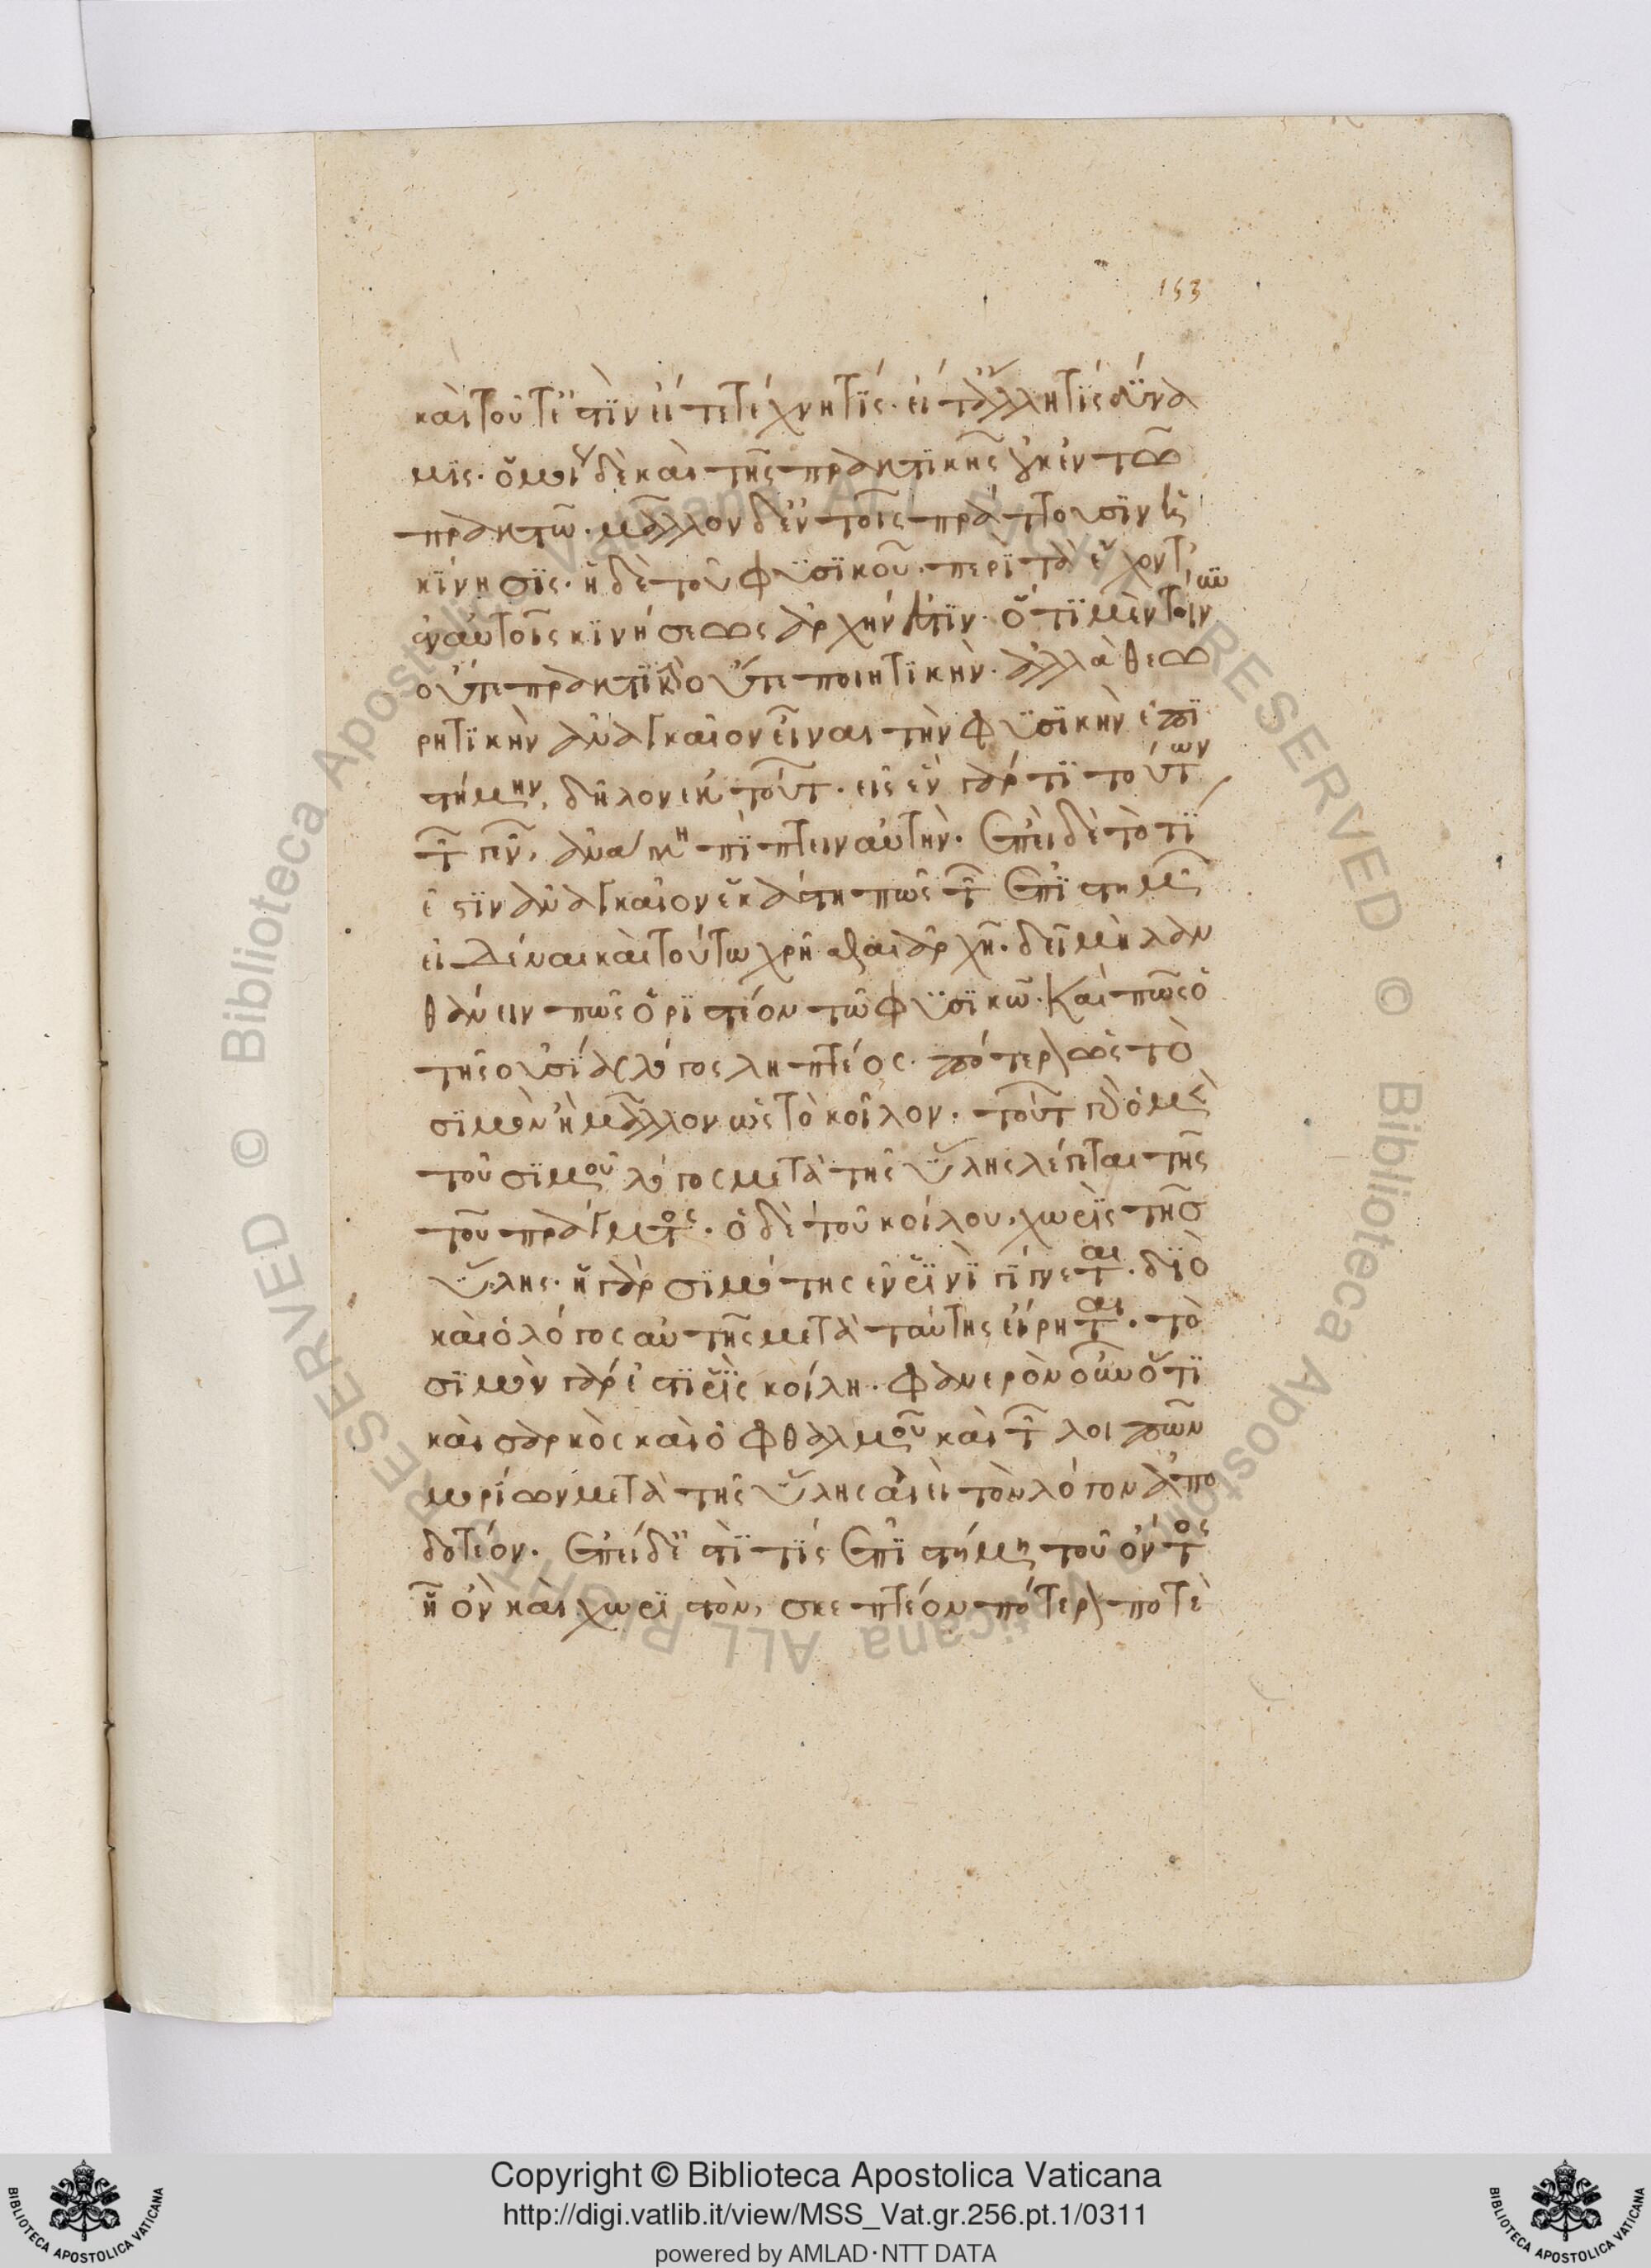 153
καὶ τοῦτ' ἔστὶν εἴτε τέχνη τίς· εἴτ' ἄλλη τίς δύνα
μις· ὁμοί δὲ καὶ τῆς πρακτικῆς οὐκ ἐν τῶ
πρακτῶ· μᾶλλον δ' ἐν τοῖς πράττουσιν ἡ
κίνησις· ἡ δὲ τοῦ φυσικοῦ· περὶ τὰ ἔχοντ'
ἐν αὑτοῖς κινήσεως ἀρχήν ἐστιν· ὅτι μὲν τοίνυν
οὔτε πρακτικὴν οὔτε ποιητικὴν· ἀλλὰ θεω
ρητικὴν ἀναγκαῖον εἶναι τὴν φυσικὴν ἐπι
στήμην, δῆλον ἐκ τούτ· εἰς ἓν γάρ τι τούτων
τ γεν, ἀνάγκη πίπτειν αὐτήν. Ἐπεὶ δὲ τὸ τί
ἐστιν ἀναγκαῖον ἑκάστη πως τ ἐπιστημ
εἰδέναι καὶ τούτω χρῆσθαι ἀρχῆ. δεῖ μὴ λαν
θάνειν πῶς ὁριστέον τῶ φυσικῶ. Καὶ πῶς ὁ
τῆς οὐσίας λόγος ληπτέος· πότερ ὡς τὸ
σιμὸν ἢ μᾶλλον ὡς τὸ κοῖλον. τούτ γὰρ ὁ μὲ
τοῦ σιμοῦ λόγος μετὰ τῆς ὕλης λέγεται τῆς
τοῦ πράγματος. ὁ δὲ τοῦ κοίλου, χωρὶς τῆς
ὕλης· ἡ γὰρ σιμότης ἐν ῥινὶ γίγνεται. διὸ
καὶ ὁ λόγος αὐτῆς μετὰ ταύτης εἴρηται. τὸ
σιμὸν γάρ ἐστι ῥὶς κοίλη. Φανερὸν οὖν ὅτι
καὶ σαρκὸς καὶ ὀφθαλμοῦ καὶ τ λοιπῶν
μορίων μετὰ τῆς ὕλης ἀεὶ τὸν λόγον ἀπο
δοτέον. Ἐπεὶ δ' ἔστι τίς ἐπιστήμη τοῦ ὄντος
ἧ ὂν καὶ χωριστὸν, σκεπτέον πότερ ποτὲ
Copyright © Biblioteca Apostolica Vaticana
http://digi.vatlib.it/view/MSS_Vat.gr.256.pt.1/0311
powered by AMLAD·NTT DATA